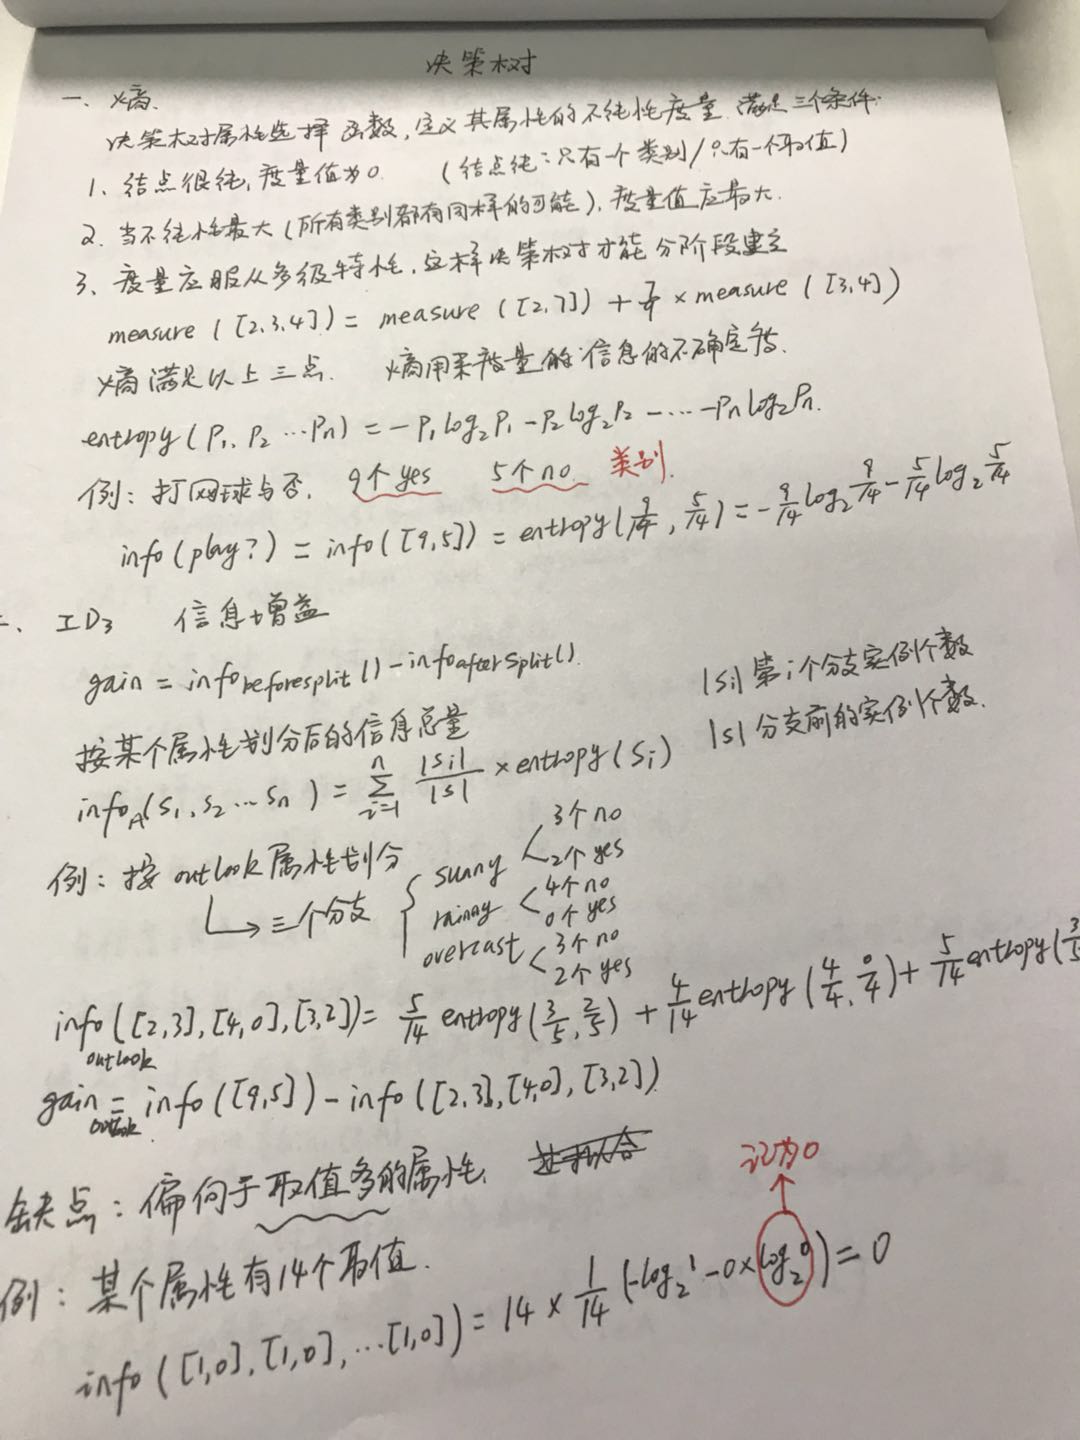 决策树
一、熵
决策树属性选择函数,定义其属性的不纯性度量,满足三个条件:
1、结点很纯,度量值为0. (结点纯:只有一个类别/只有一个取值)
2、当不纯性最大(所有类别都有同样的可能),度量值应最大.
3、度量应服从多级特性,这样决策树才能分阶段建立
measure ([2,3,4]) = measure ([2,7]) + 7/9 × measure ([3,4])
熵满足以上三点. 熵用来度量的信息的不确定度.
entropy(P₁, P₂ ⋯Pn) = -P₁log₂P₁ - P₂log₂P₂ - ⋯ -Pnlog₂Pn.
例:打网球与否, 9个yes 5个no 类别.
info(play?) = info([9,5]) = entropy(9/14, 5/14) = -9/14 log₂ 9/14 - 5/14 log₂ 5/14
二、ID3 信息增益
gain = infobeforesplit() - infoaftersplit().
|Si| 第i个分支实例个数
按某个属性划分后的信息总量
|S| 分支前的实例个数.
infoA(S₁, S₂ ⋯ Sn) = ∑ⁿᵢ₌₁ |Si|/|S| × entropy(Si)
例:按outlook属性划分
→三个分支
sunny 3个no 2个yes
rainy 4个no 0个yes
overcast 3个no 2个yes
info([2,3],[4,0],[3,2]) = 5/14 entropy(3/5, 2/5) + 4/14 entropy(4/4, 0/4) + 5/14 entropy(3/5
outlook
gain = info([9,5]) - info([2,3],[4,0],[3,2])
outlook
缺点:偏向于取值多的属性.
记为0
例:某个属性有14个取值.
info([1,0],[1,0],⋯[1,0]) = 14 × 1/14 (-log₂1 - 0×log₂0) = 0